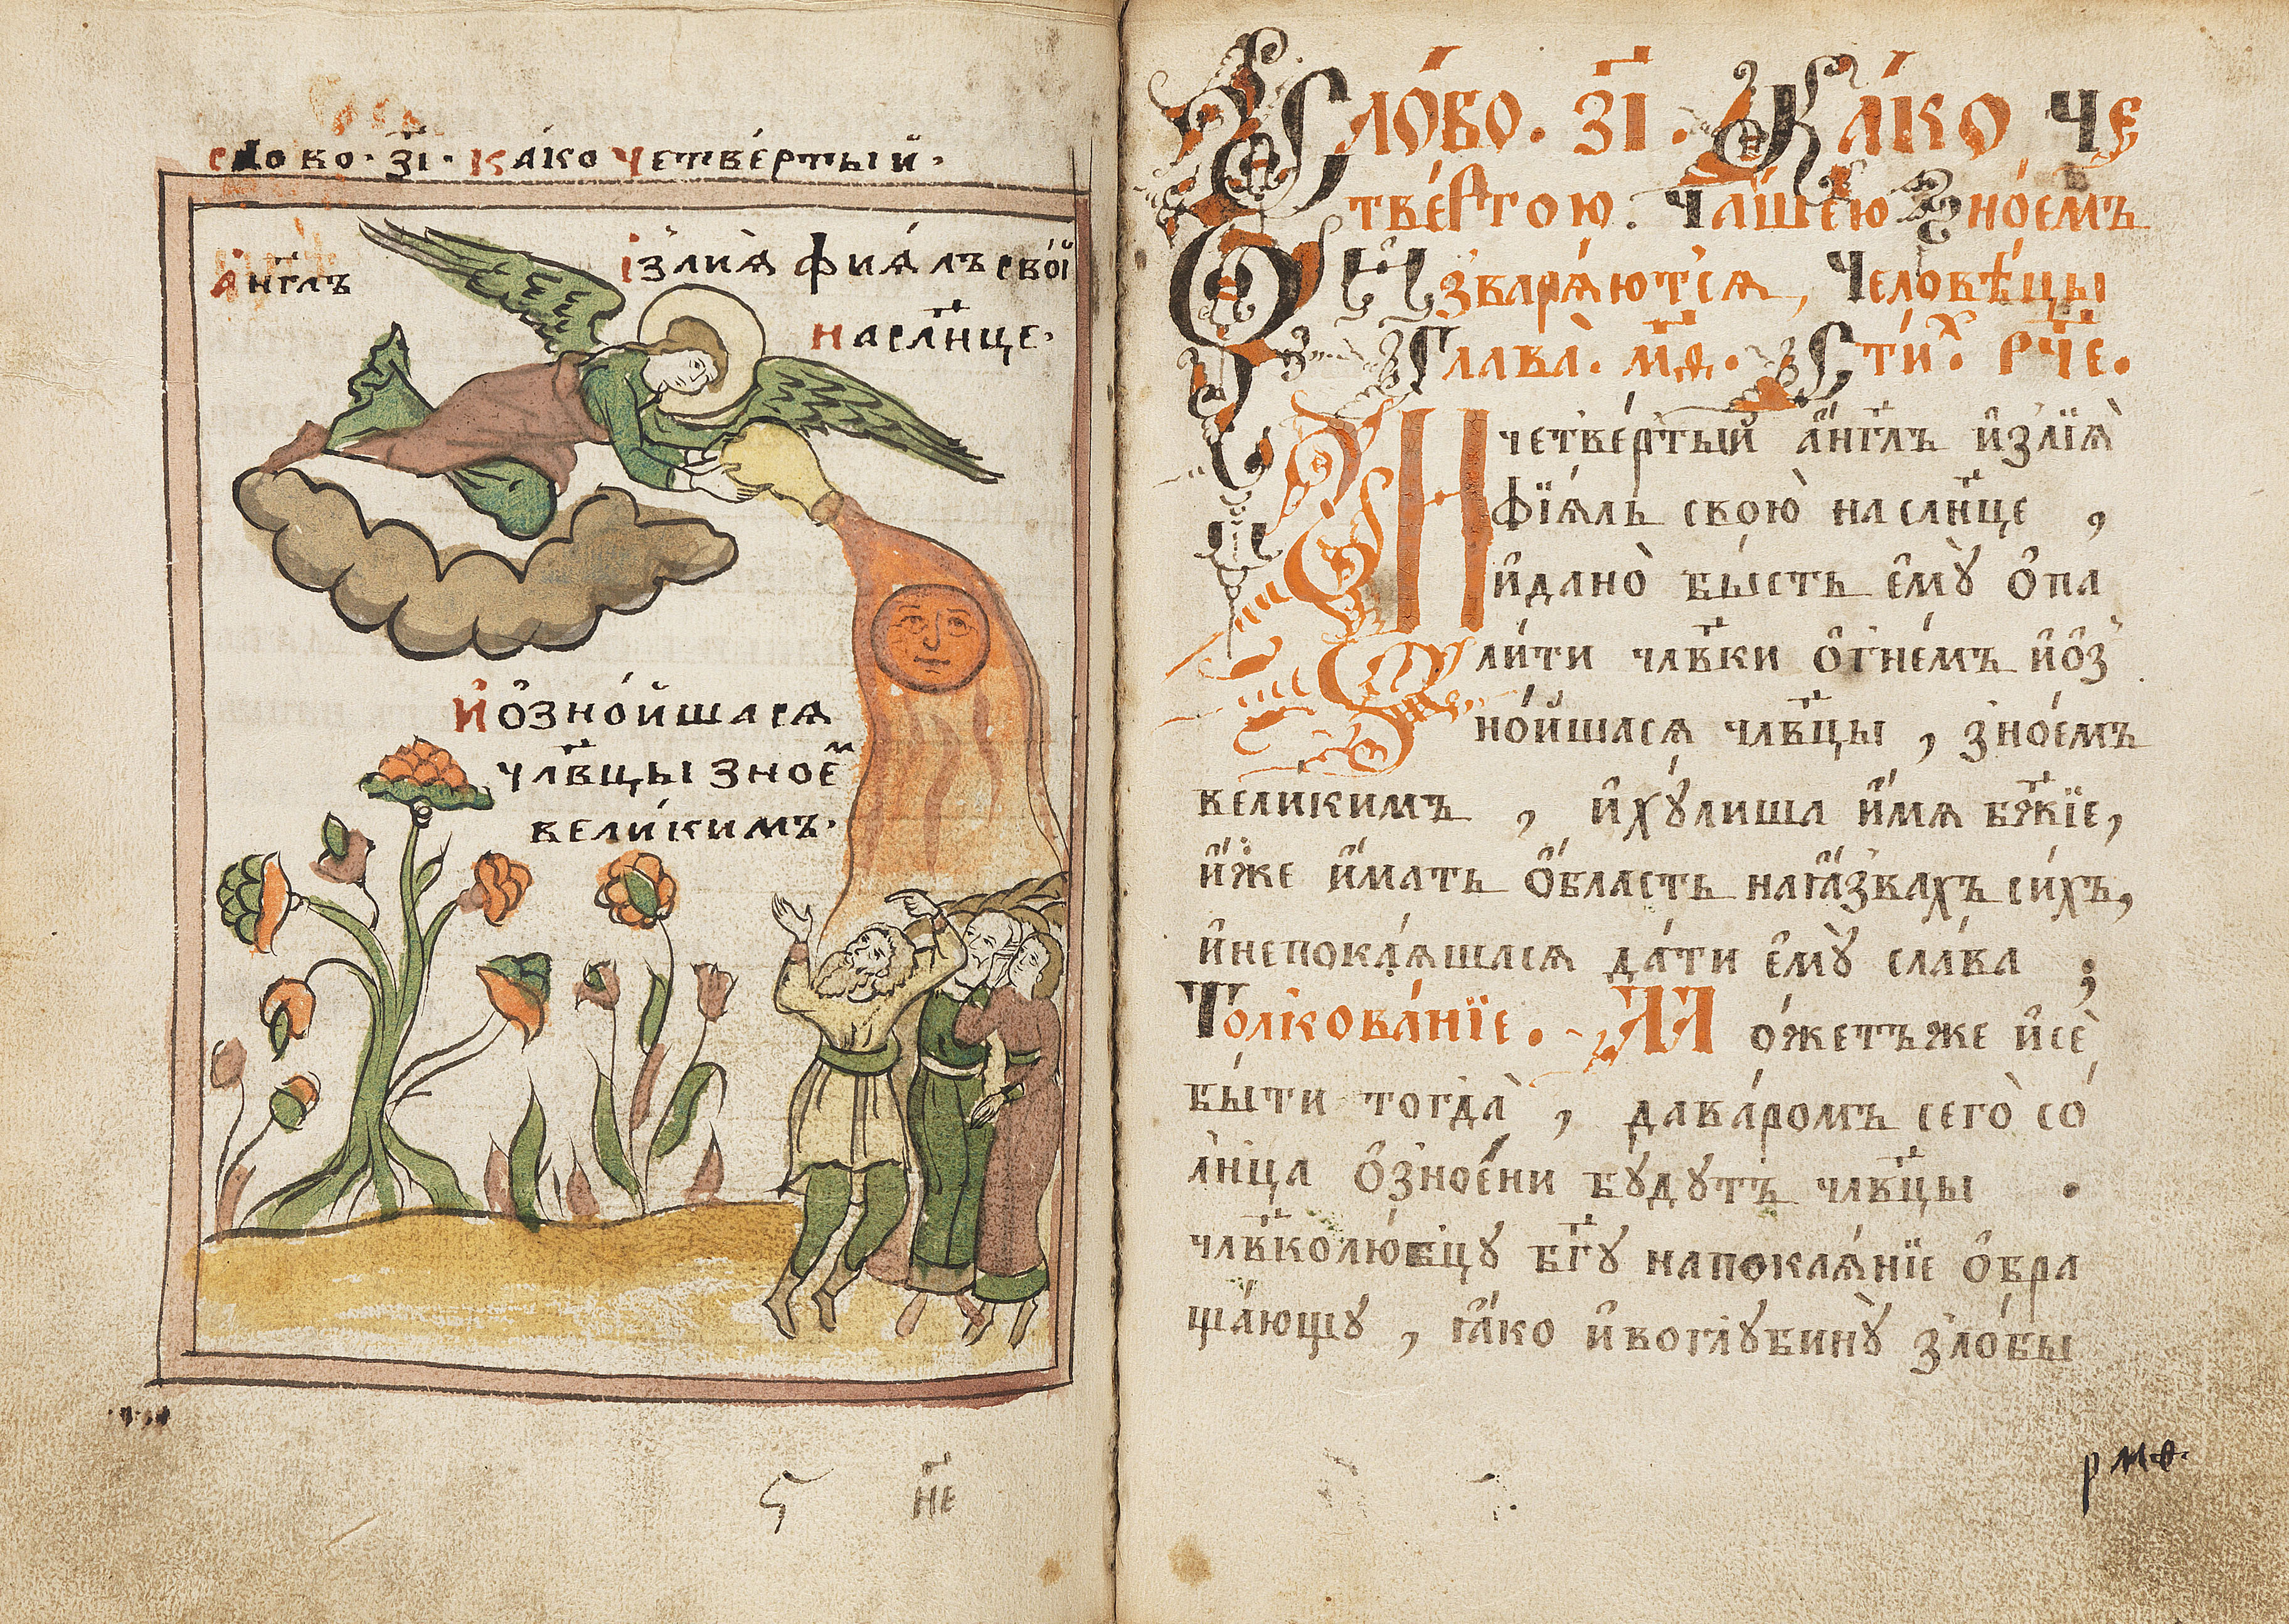 слово · з҃і · ка́ко четве́ртый ·
а҆́нг҃лъ
ізлия̀ фия́лъ сво́й
на сл҃нце ·
и҆ ѡ҆зно́йшася
чл҃вцы зное҆ᷟ
вели́кимъ ·
н҃е
Сло́во · з҃і · Ка́ко че
тве́ртою . ча́шею зно́емъ
И҆зваря́ются , человѣ́цы
Глава̀ · м҃ѳ · Сти́х · рч҃е ·
И҆ четве́ртый а҆́нг҃лъ и҆злїѧ̀
фїѧ́лъ свою̀ на сл҃нце ,
и҆ дано̀ бы́сть є҆мꙋ̀ ѻ҆па
ли́ти чл҃вки ѻ҆гне́мъ и҆ ѻ҆з
но́йшася чл҃вцы , зно́емъ
великимъ , и҆ хꙋ́лиша и҆́мя бж҃їе ,
и҆́же и҆́мать ѻ҆́бласть на ꙗ҆́звахъ си́хъ ,
и҆ не пока́яшася да́ти є҆мꙋ̀ сла́ва ;
Толкова́нїе . Мо́жетъ же и҆ сѐ
бы́ти тогда̀ , да ва́ромъ сего̀ со́
лнца ѻ҆зное́ни бꙋ́дꙋтъ чл҃вцы .
чл҃вколю́бцꙋ бг҃ꙋ на покая́нїе ѻ҆бра
ща́ющꙋ , ꙗ҆́ко и҆ во глꙋбинꙋ̀ зло́бы
рмѳ ·